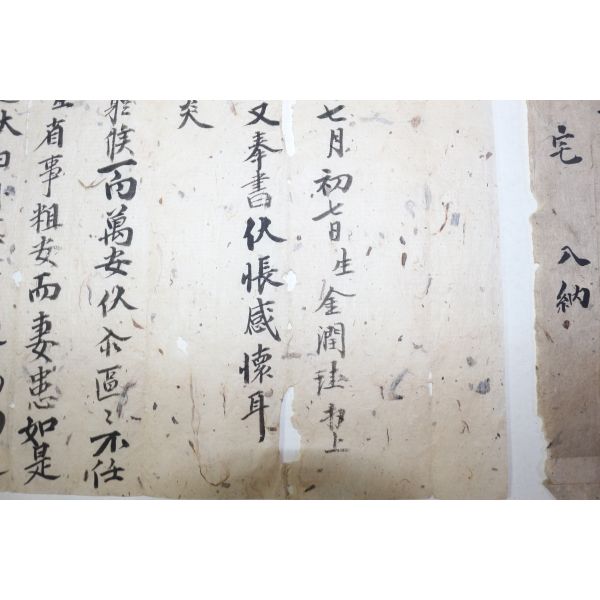 宅 入納
七月初七日生金潤珪拜上
又奉書伏悵感懷耳
矣
候一向萬安伏 區〻不任
省事粗安而妻患如是